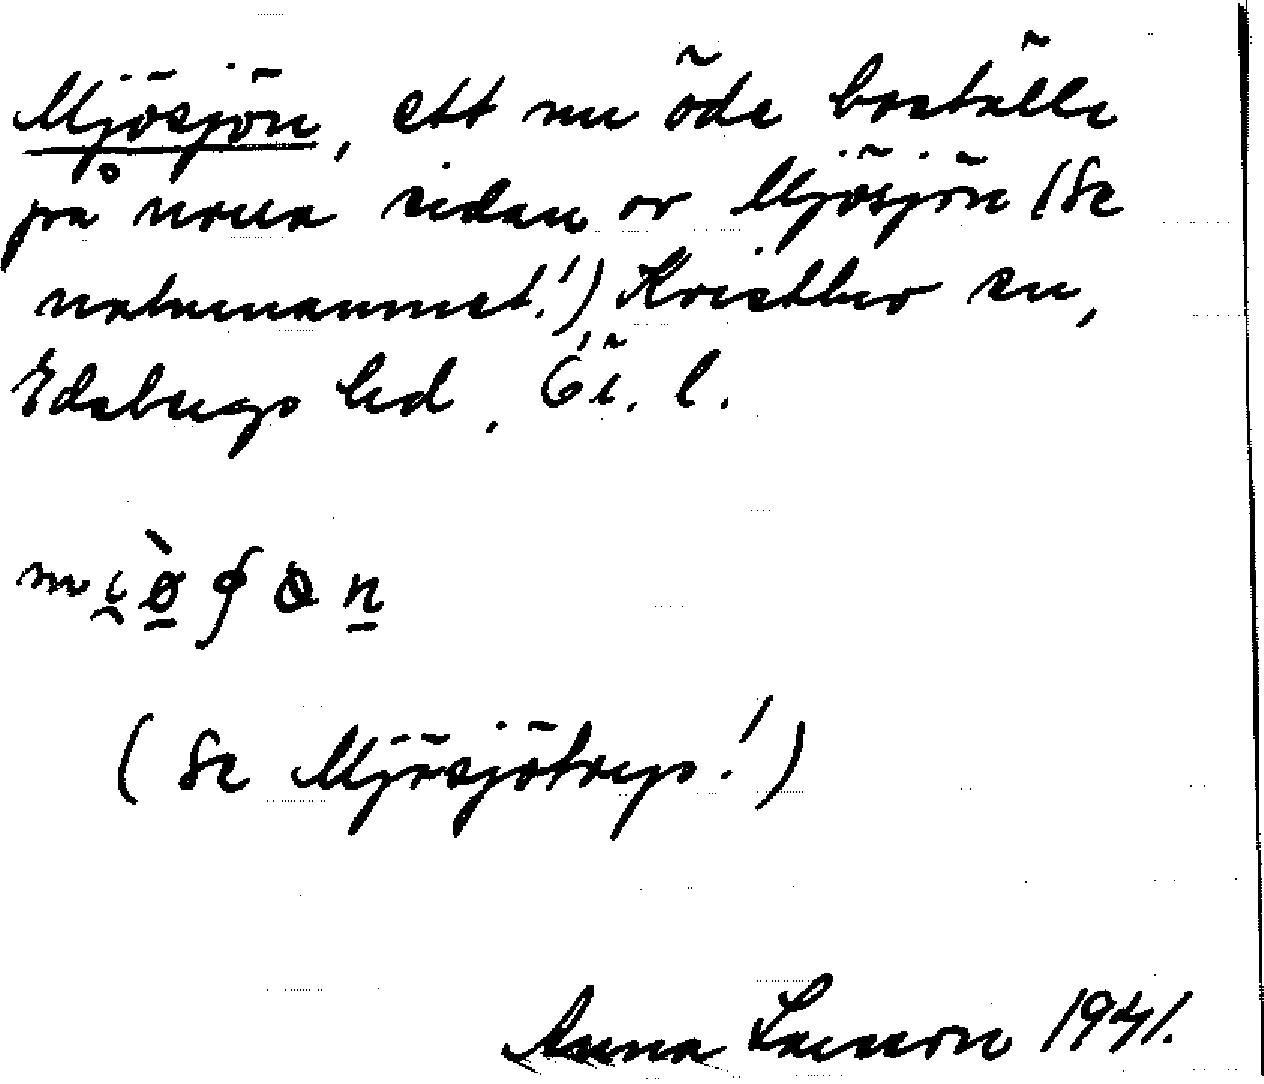 Mjösjön, ett nu öde boställe
på norra sidan av Mjösjön (Se
naturnamnet!) Kristber sn,
Edsbergs hd, Ö.l.
(Se Mjösjötorp!)
Anna Larsson 1941.